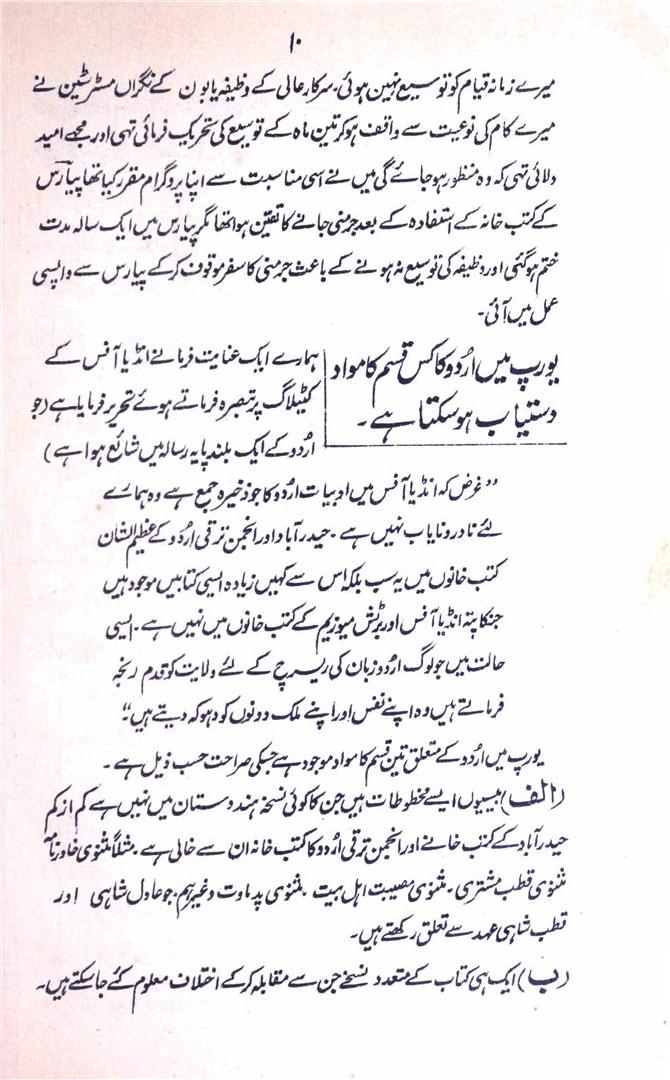 ۱۰
میرے زمانہ قیام کو توسیع نہیں ہوئی۔ سرکار عالی کے وظیفہ یابون کے نگراں مسٹر سٹین نے
میرے کام کی نوعیت سے واقف ہوکر تین ماہ کے توسیع کی تحریک فرمائی تہی اور مجھے امید
دلائی تہی کہ وہ منظور ہو جائے گی میں نے اسی مناسبت سے اپنا پروگرام مقرر کیا تھا پیارس
کے کتب خانہ کے استفادہ کے بعد جرمنی جانے کا تعین ہوا تھا مگر پیارس میں ایک سالہ مدت
ختم ہوگئی اور وظیفہ کی توسیع نہ ہونے کے باعث جرمنی کا سفر موقوف کرکے پیارس سے واپسی
عمل میں آئی۔
یورپ میں اُردو کا کس قسم کا مواد
دستیاب ہو سکتا ہے۔
ہمارے ایک عنایت فرمانے انڈیا آفس کے
کٹیلاگ پر تبصرہ فرماتے ہوئے تحریر فرمایا ہے (جو
اُردو کے ایک بلند پایہ رسالہ میں شائع ہوا ہے)
”غرض کہ انڈیا آفس میں ادبیات اردو کا جو ذخیرہ جمع ہے وہ ہمارے
لئے نادر و نایاب نہیں ہے۔ حیدرآباد اور انجمن ترقی اُردو کے عظیم الشان
کتب خانوں میں یہ سب بلکہ اس سے کہیں زیادہ ایسی کتابیں موجود ہیں
جنکا پتہ انڈیا آفس اور برٹش میوزیم کے کتب خانوں میں نہیں ہے۔ ایسی
حالت میں جو لوگ اردو زبان کی ریسرچ کے لئے ولایت کو قدم رنجہ
فرماتے ہیں وہ اپنے نفس اور اپنے ملک دونوں کو دہوکہ دیتے ہیں“
یورپ میں اردو کے متعلق تین قسم کا مواد موجود ہے جسکی صراحت حسب ذیل ہے۔
(الف) بیسیوں ایسے مخطوطات ہیں جن کا کوئی نسخہ ہندوستان میں نہیں ہے کم از کم
حیدرآباد کے کتب خانے اور انجمن ترقی اُردو کا کتب خانہ ان سے خالی ہے۔ مثلاً مثنوی خاور نامہ
مثنوی قطب مشتری۔ مثنوی مصیبت اہل بیت۔ مثنوی پدماوت وغیرہم۔ جو عادل شاہی اور
قطب شاہی عہد سے تعلق رکھتے ہیں۔
(ب) ایک ہی کتاب کے متعدد نسخے جن سے مقابلہ کرکے اختلاف معلوم کئے جا سکتے ہیں۔